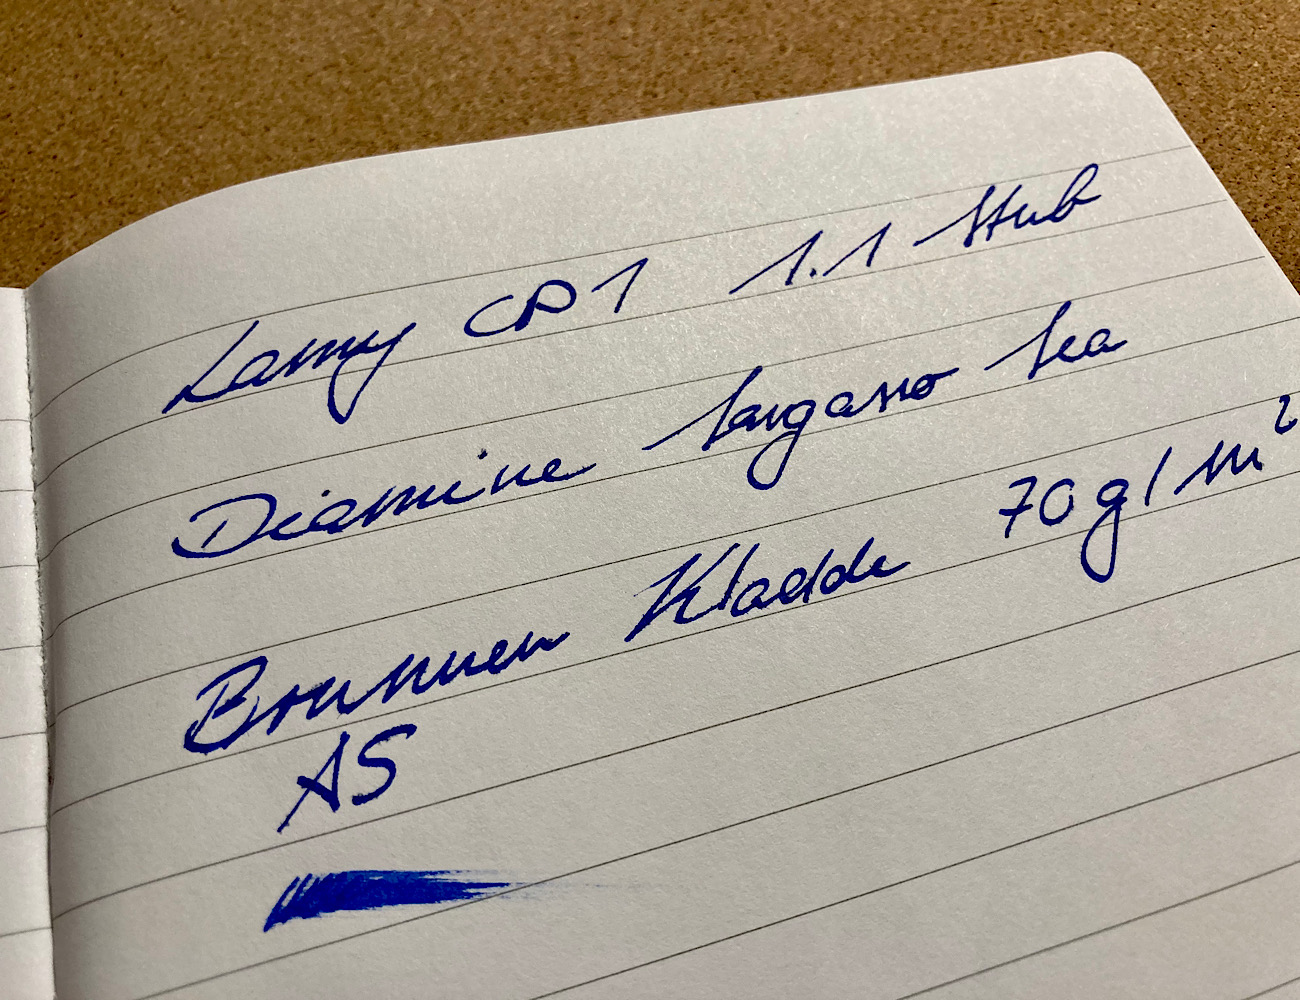 Lamy CP1 1.1 Stub
Diamine Sargasso Sea
Brunnen Kladde 70g/m²
A5